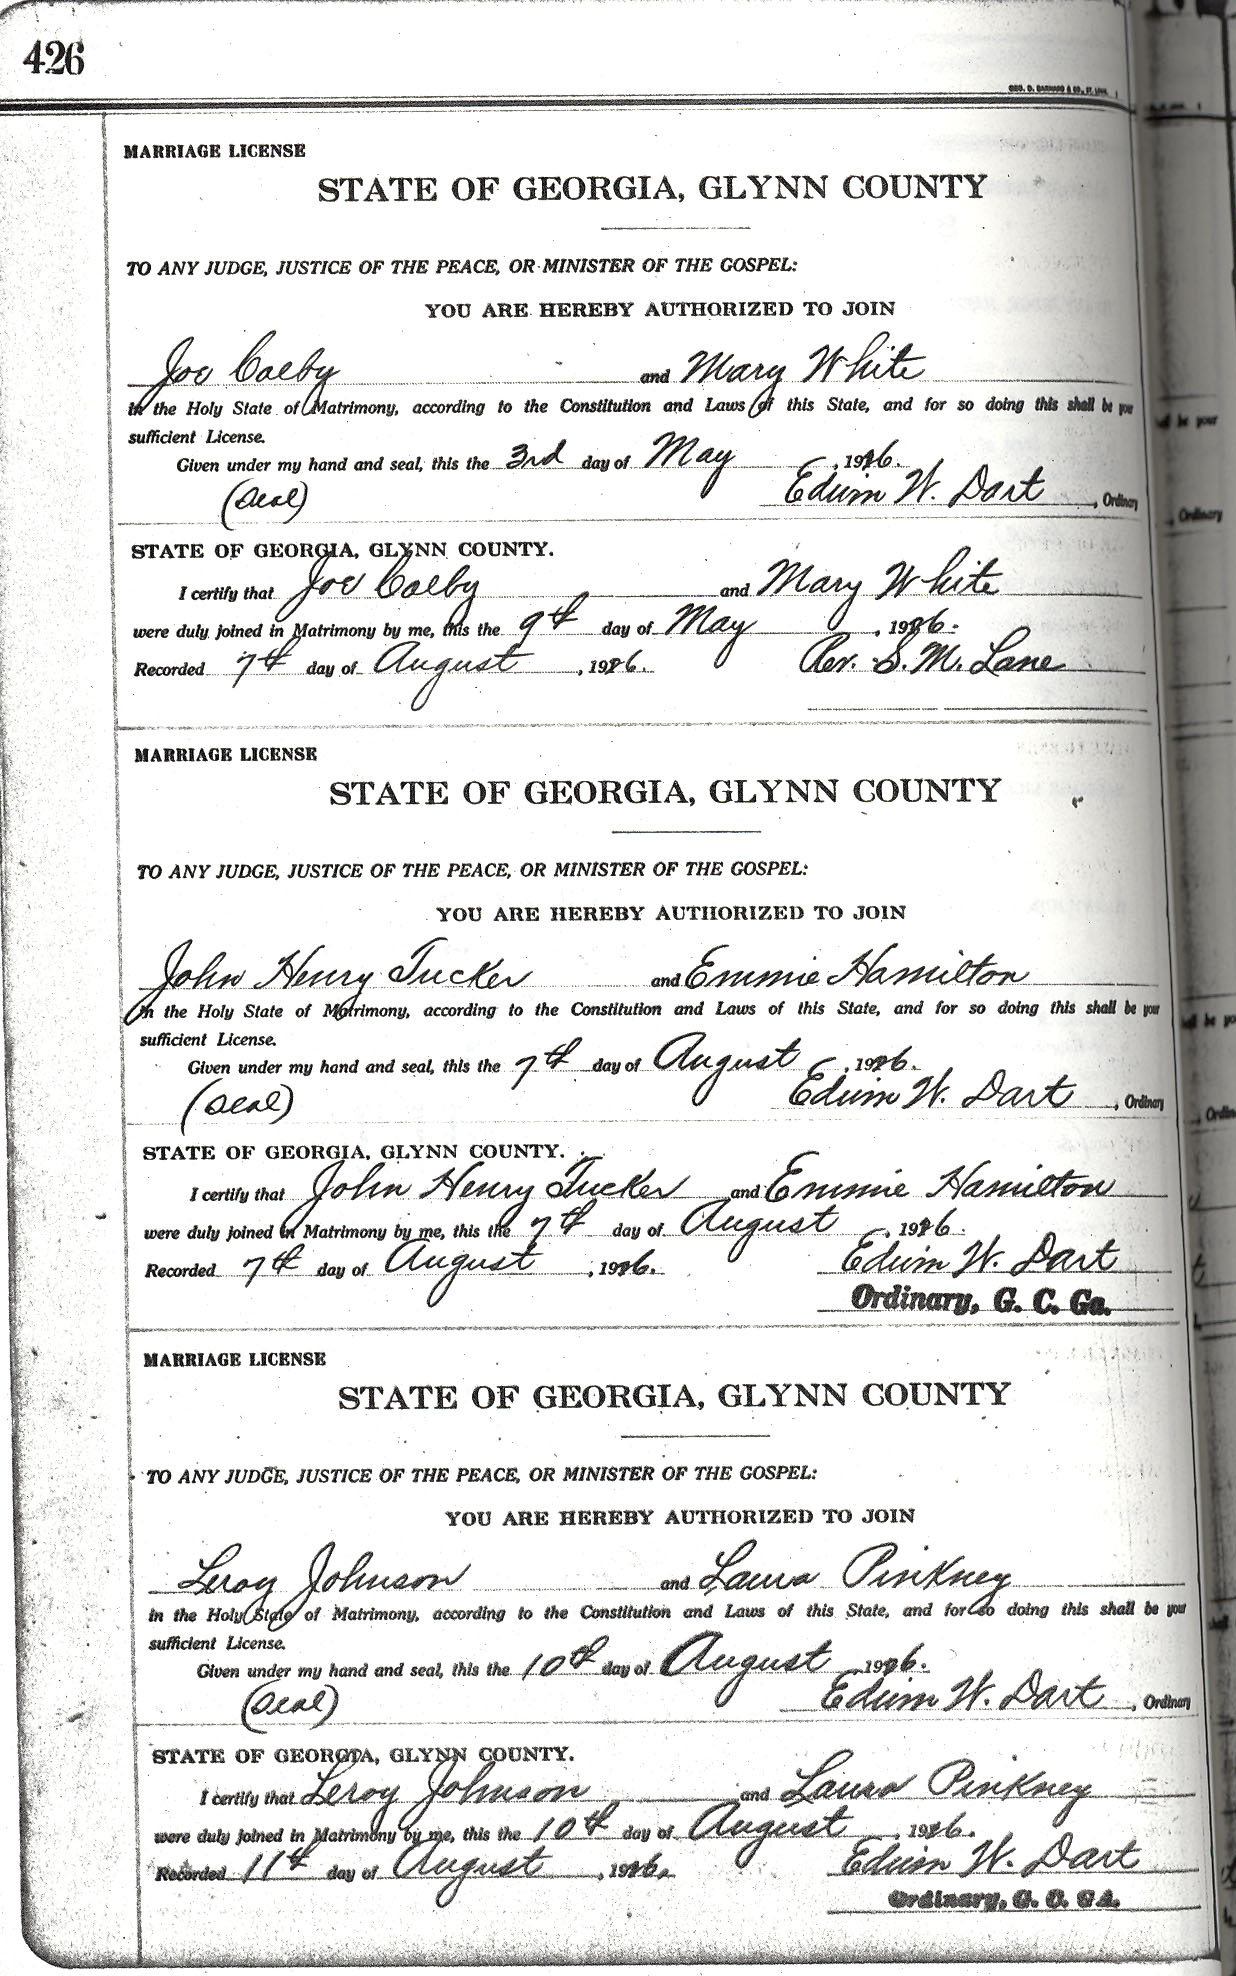 426
GEO. D. BARNARD & CO., ST. LOUIS
MARRIAGE LICENSE
STATE OF GEORGIA, GLYNN COUNTY
TO ANY JUDGE, JUSTICE OF THE PEACE, OR MINISTER OF THE GOSPEL:
YOU ARE HEREBY AUTHORIZED TO JOIN
Joe Colby and Mary White
in the Holy State of Matrimony, according to the Constitution and Laws of this State, and for so doing this shall be your
sufficient License.
Given under my hand and seal, this the 3rd day of May, 1926.
(Seal) Edwin W. Dart, Ordinary
STATE OF GEORGIA, GLYNN COUNTY.
I certify that Joe Colby and Mary White
were duly joined in Matrimony by me, this the 9th day of May, 1926.
Recorded 7th day of August, 1926. Rev. S. M. Lane
MARRIAGE LICENSE
STATE OF GEORGIA, GLYNN COUNTY
TO ANY JUDGE, JUSTICE OF THE PEACE, OR MINISTER OF THE GOSPEL:
YOU ARE HEREBY AUTHORIZED TO JOIN
John Henry Tucker and Emmie Hamilton
in the Holy State of Matrimony, according to the Constitution and Laws of this State, and for so doing this shall be your
sufficient License.
Given under my hand and seal, this the 7th day of August, 1926.
(Seal) Edwin W. Dart, Ordinary
STATE OF GEORGIA, GLYNN COUNTY.
I certify that John Henry Tucker and Emmie Hamilton
were duly joined in Matrimony by me, this the 7th day of August, 1926.
Recorded 7th day of August, 1926. Edwin W. Dart
Ordinary, G. C. Ga.
MARRIAGE LICENSE
STATE OF GEORGIA, GLYNN COUNTY
TO ANY JUDGE, JUSTICE OF THE PEACE, OR MINISTER OF THE GOSPEL:
YOU ARE HEREBY AUTHORIZED TO JOIN
Leroy Johnson and Laura Pinkney
in the Holy State of Matrimony, according to the Constitution and Laws of this State, and for so doing this shall be your
sufficient License.
Given under my hand and seal, this the 10th day of August, 1926.
(Seal) Edwin W. Dart, Ordinary
STATE OF GEORGIA, GLYNN COUNTY.
I certify that Leroy Johnson and Laura Pinkney
were duly joined in Matrimony by me, this the 10th day of August, 1926.
Recorded 11th day of August, 1926. Edwin W. Dart
Ordinary, G. C. GA.